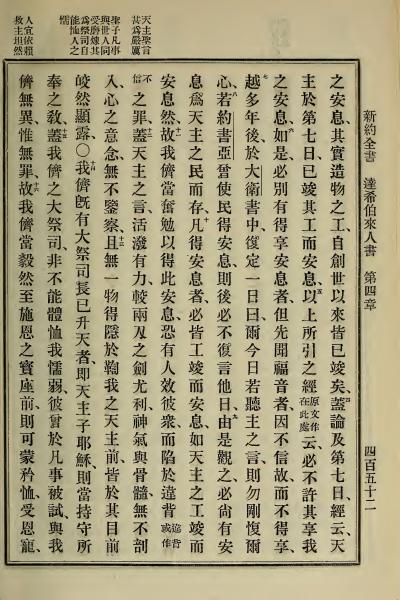 新約全書　達希伯來人書　第四章　四百五十二
之安息、其實造物之工、自創世以來皆已竣矣、蓋論及第七日、經云、天
主於第七日、已竣其工而安息、以上所引之經原文作在此處云、必不許其享我
之安息、如是必別有得享安息者、但先聞福音者、因不信故而不得享、
越多年後、於大衛書中、復定一日曰、爾今日若聽主之言、則勿剛愎爾
心、若約書亞曾使民得安息、則後必不復言他日、由是觀之、必尚有安
息爲天主之民而存、凡得安息者、必皆工竣而安息、如天主之工竣而
安息然、故我儕當奮勉以得此安息、恐有人效彼衆而陷於違背違背或作
不信之罪、蓋天主之言、活潑有力、較兩刃之劍尤利、神氣與骨髓、無不剖
入、心之意念、無不鑒察、且無一物得隱於鞫我之天主前、皆於其目前
皎然顯露〇我儕旣有大祭司長已升天者、卽天主子耶穌、則當持守所
奉之敎、蓋我儕之大祭司、非不能體恤我懦弱、彼嘗於凡事被試、與我
儕無異、惟無罪、故我儕當毅然至施恩之寶座前、則可蒙矜恤、受恩寵、
天主聖言
甚爲嚴厲
聖子凡事
與世人同
受磨煉其
爲祭司自
能恤人之
懦
人宜依賴
救主坦然